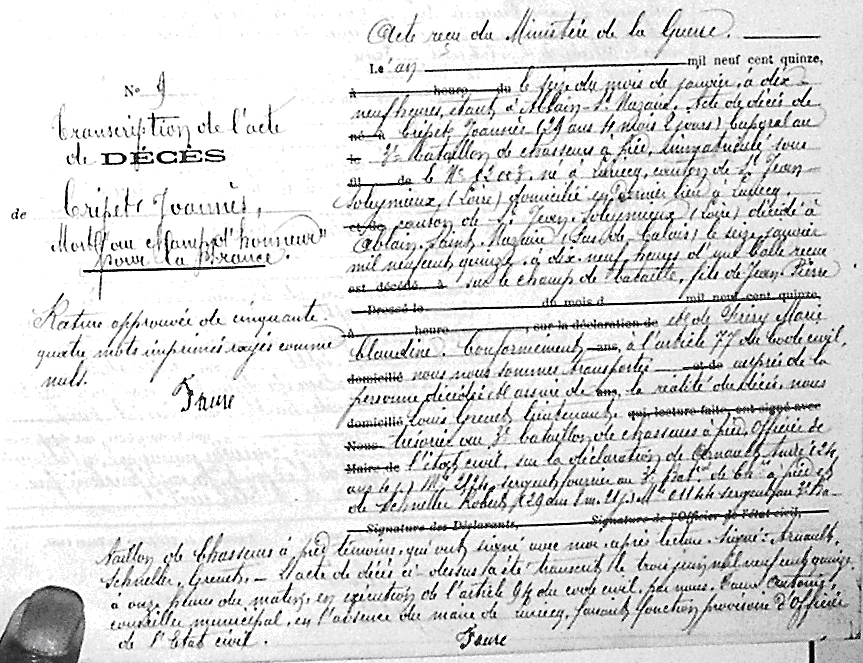 Acte reçu du Ministère de la Guerre.
N° 9
Transcription de l'acte
de DÉCÈS
de Cripet Joannès,
Mort "au champ d'honneur"
pour la France.
Rature approuvée de cinquante
quatre mots imprimés rayés comme
nuls.
Faure
Le an mil neuf cent quinze,
à heure du le seize du mois de janvier, à dix
neuf heures, étant à Ablain-St Nazaire, Acte de décès de
né à Cripet Joannès (29 ans 4 mois 2 jours) Caporal au
le 3e Bataillon de chasseurs à pied, immatriculé sous
fil de le No né à Luriecq, canton de St Jean
Soleymieux, (Loire) domicilié en dernier lieu à Luriecq,
et de canton de St Jean Soleymieux (Loire) décédé à
Ablain Saint Nazaire (Pas de Calais) le seize janvier
mil neuf cent quinze à dix neuf heures d'une balle reçue
est décédé à sur le champ de bataille, fils de Jean Pierre
Dressé le du mois d mil neuf cent quinze
à heure , sur la déclaration de et de Marie
Claudine. Conformément ans, à l'article 77 du code civil,
domicilié nous nous sommes transportés et de auprès de la
personne décédée et assuré de ans, la réalité du décès, nous
domicilié Louis Grenet, lieutenant qui, lecture faite, ont signé avec
Nous trésorier au 3e bataillon de chasseurs à pied, Officier de
Maire de l'état civil, sur la déclaration de Arnault (24
ans 4 j.) Mle 2144 sergent fourrier au 3e Bat. de Ch. à pied et
de Schneller Robert (29 ans 1 m. 21 j.) Mle sergent au 3e Ba-
Signature des Déclarants, Signature de l'Officier de l'état civil,
taillon de Chasseurs à pied témoins, qui ont signé avec moi, après lecture. Signé: Arnault,
Schneller, Grenet, - L'acte de décès ci-dessus a été transcrit le trois juin mil neuf cent quinze
à onze heures du matin, en exécution de l'article 94 du code civil, par nous, Faure Antoine,
conseiller municipal, en l'absence du maire de Luriecq, faisant fonction provisoire d'Officier
de l'Etat civil.
Faure